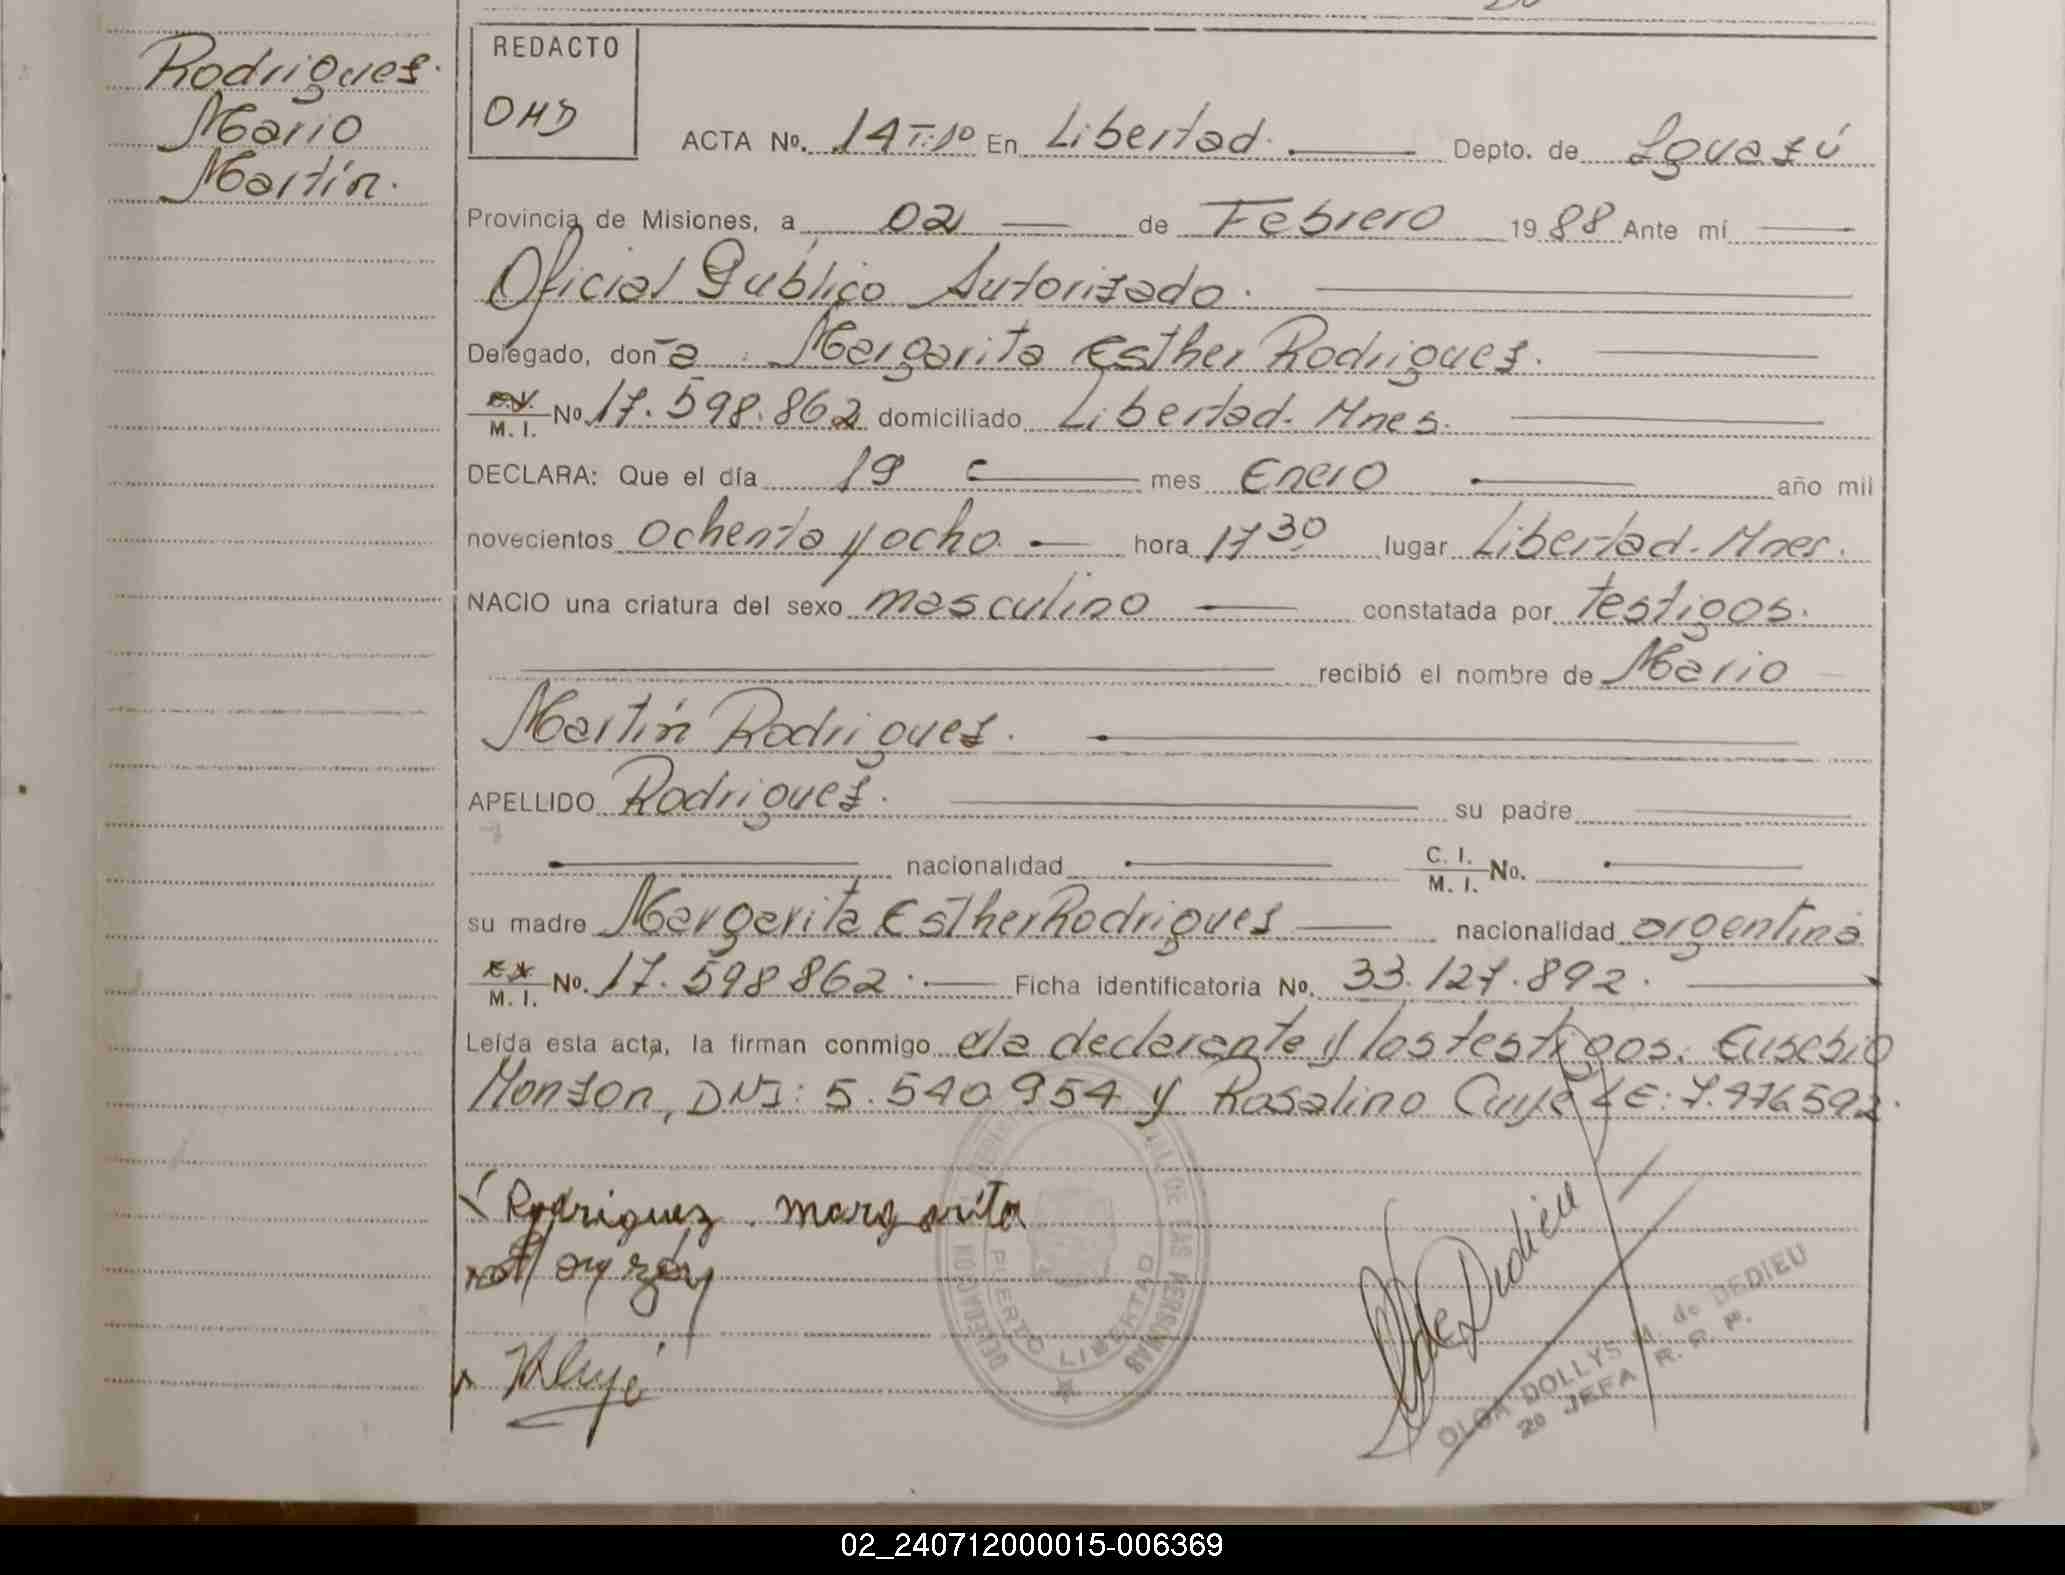 Rodrigues.
Mario
Martín.
REDACTO
OHD
ACTA No. 14 T:1º En Libertad. Depto. de Iguazú
Provincia de Misiones, a 02 de Febrero 1988 Ante mí
Oficial Público Autorizado.
Delegado, don~a Margarita Esther Rodrigues.
M. I. No. 17.598.862 domiciliado Libertad. Mnes.
DECLARA: Que el día 19 mes Enero año mil
novecientos ochenta y ocho hora 17 30 lugar Libertad. Mnes.
NACIO una criatura del sexo masculino constatada por testigos.
recibió el nombre de Mario
Martín Rodrigues.
APELLIDO Rodrigues. su padre
nacionalidad C. I. M. I. No.
su madre Margarita Esther Rodrigues nacionalidad argentina
M. I. No. 17.598862. Ficha identificatoria No. 33.127.892.
Leída esta acta, la firman conmigo la declarante y los testigos. Eusebio
Monzon, DNI: 5.540954 y Rosalino Cuyé LE: 7.476592.
Rodriguez margarita
PUERTO LIBERTAD
DE LAS PERSONAS
de Dedieu
OLGA DOLLYS M. de DEDIEU
2º JEFA R. P. P.
02_240712000015-006369